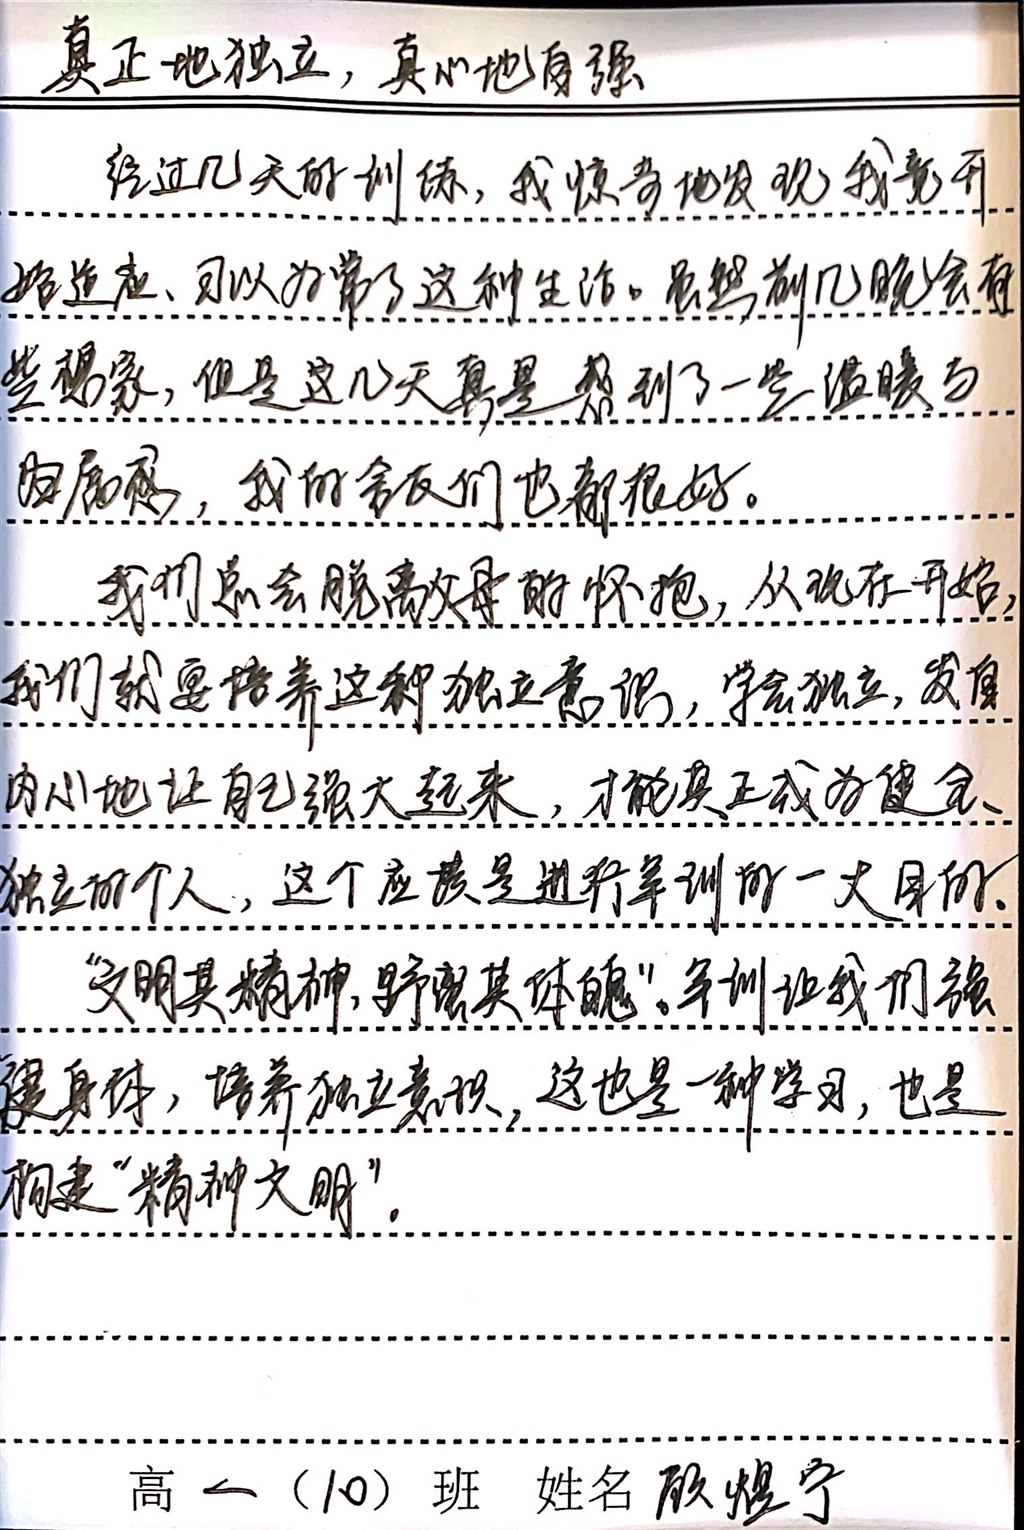 真正地独立，真心地自强
经过几天的训练，我惊奇地发现我竟开
始适应、习以为常了这种生活。虽然前几晚会有
些想家，但是这几天真是感到了一些温暖与
归属感，我的舍友们也都很好。
我们总会脱离父母的怀抱，从现在开始，
我们就要培养这种独立意识，学会独立，发自
内心地让自己强大起来，才能真正成为健全、
独立的个人，这个应该是进行军训的一大目的.
“文明其精神，野蛮其体魄”。军训让我们强
健身体，培养独立意识，这也是一种学习，也是
构建“精神文明”.
高一（10）班 姓名 顾煜宁